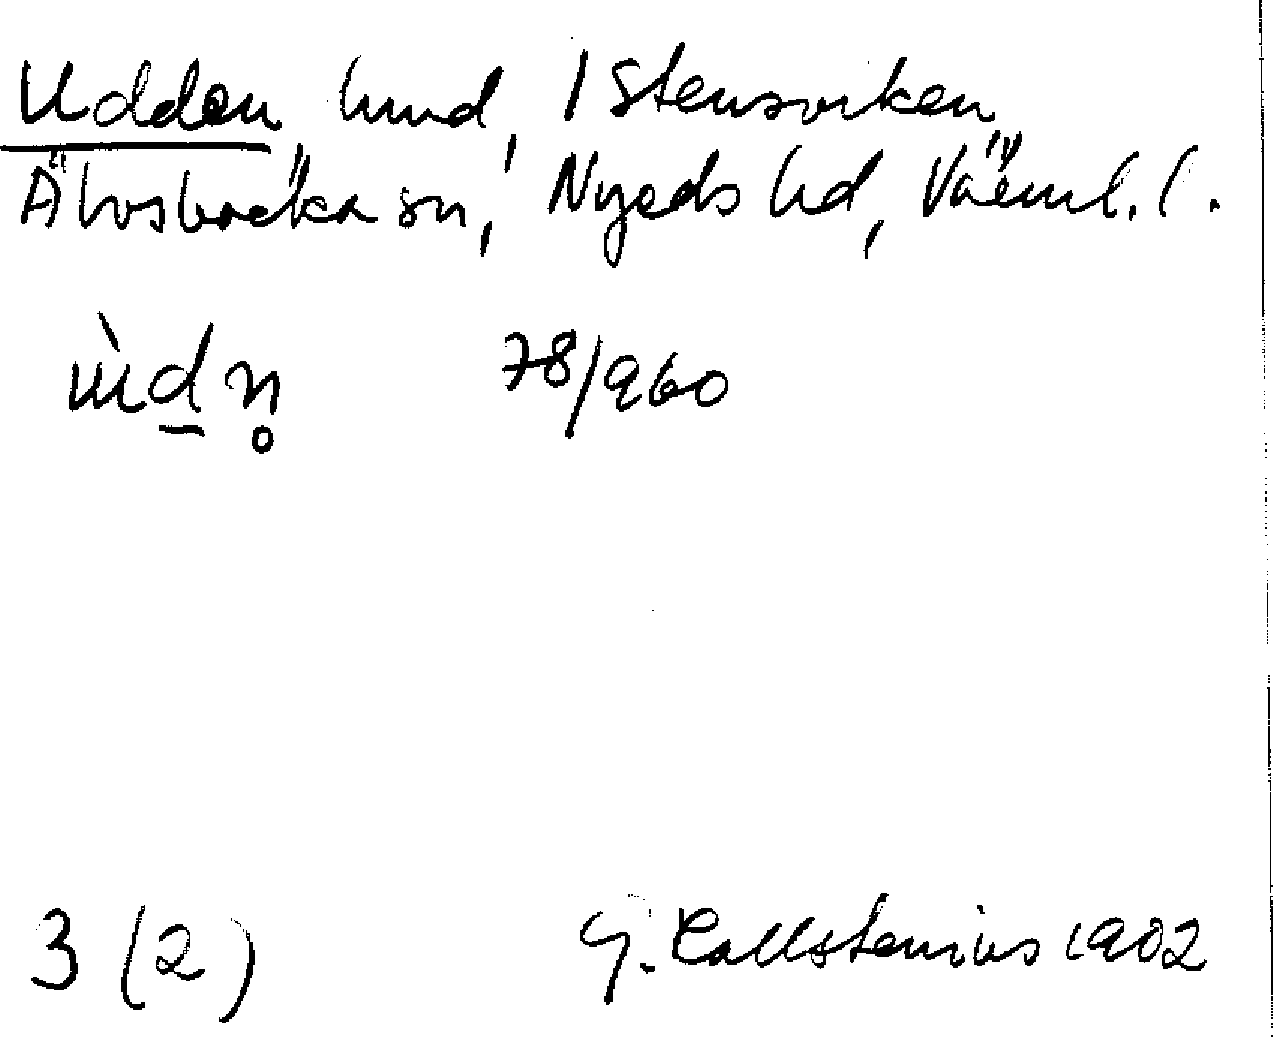 Udden hmd, 1 Stensviken,
Älvsbacka sn, Nyeds hd, Värml. l.
ùdn̥ 78/960
3 (2) G. Kallstenius 1902